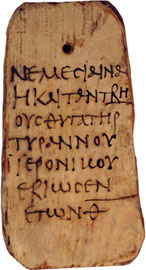 ΝΕΜΕΣΙΩΝΩ
ΗΚΑΙΤΑΝΤΚΗ
ΟΥΣΘΥΓΑΤΗΡ
ΤΥΡΑΝΝΟΥ
ΙΕΡΟΝΙΚΟΥ
ΕΒΙΩΣΕΝ
ΕΤΩΝΘ